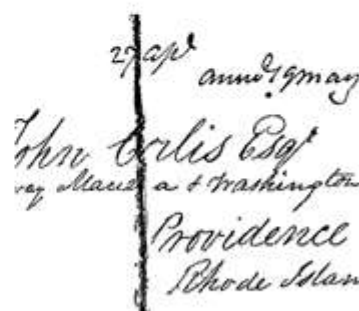 27 apl
annod 19 may
John Corlis Esqr
way Maced a & Washington
Providence
Rhode Islan